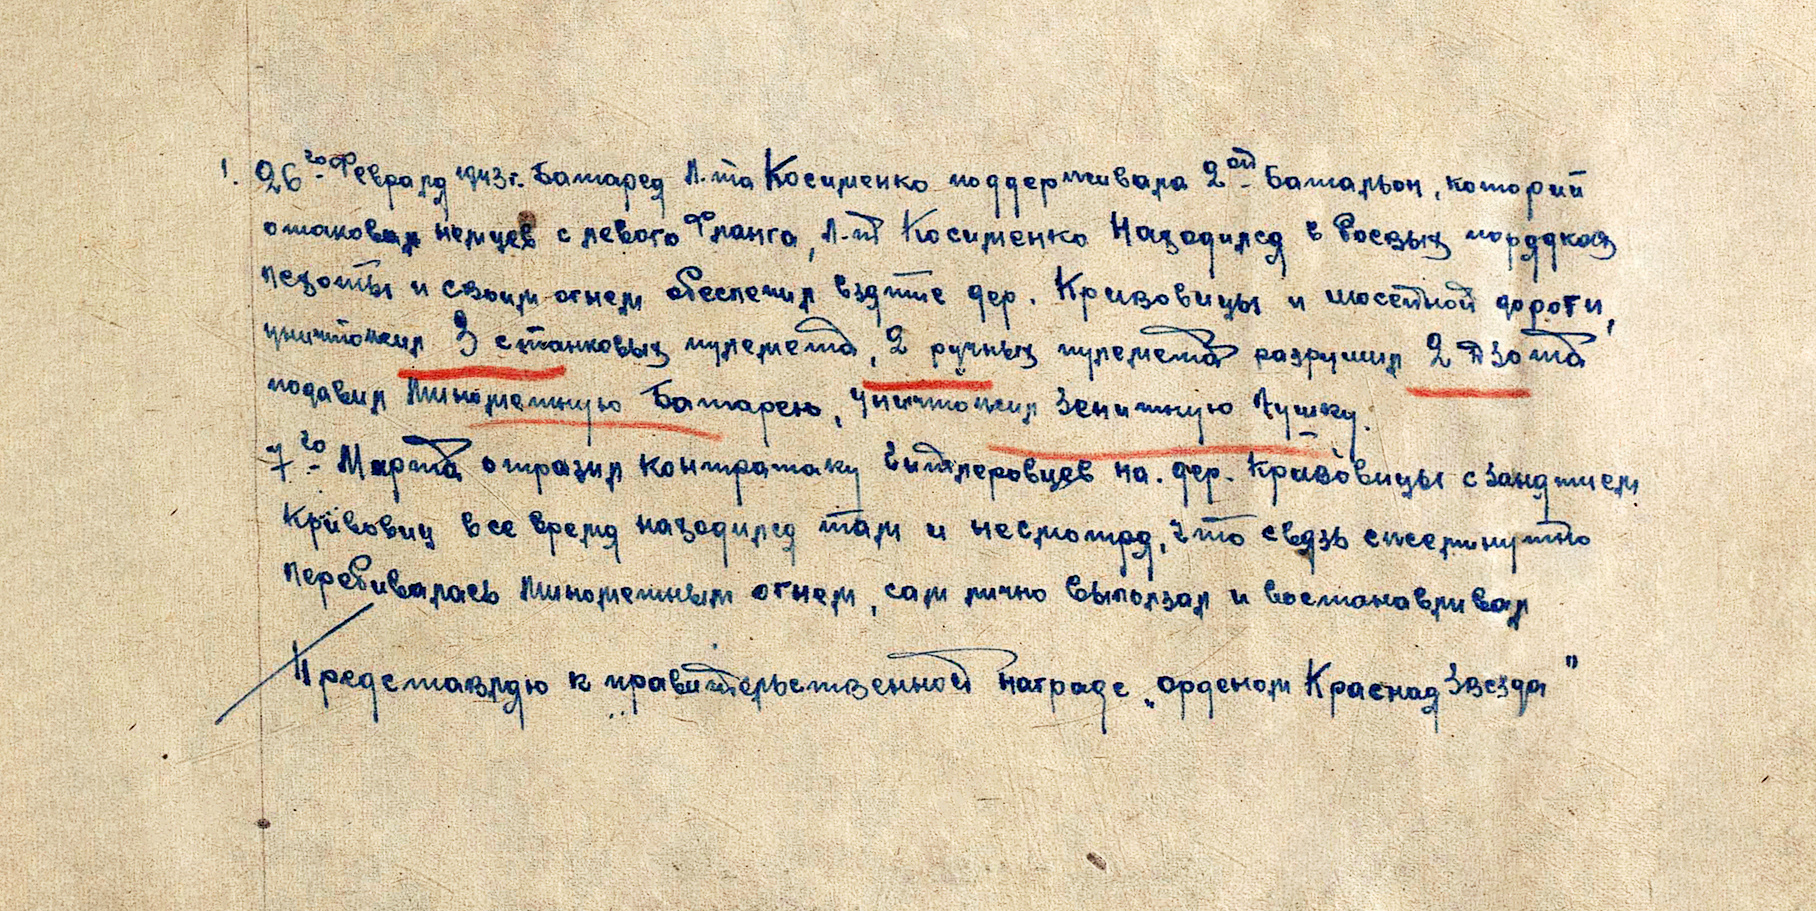 1. 26го Февраля 1943г. Батарея Л-та Косименко поддерживала 2ой Батальон, который
атаковал немцев с левого Фланга, Л-т Косименко Находился в Боевых порядках
пехоты и своим огнем обеспечил взятие дер. Кривовицы и шоссейной дороги,
уничтожил 3 станковых пулемета, 2 ручных пулемета разрушил 2 Дзота
подавил Минометную Батарею, Уничтожил Зенитную Пушку.
7го Марта отразил контратаку Гитлеровцев на. дер. Кривовицы с занятием
Кривовиц все время находился там и несмотря, что связь ежеминутно
Перебивалась Минометным огнем, сам лично выползал и востонавливал
Представляю к правительственной награде „орденом Красная Звезда"